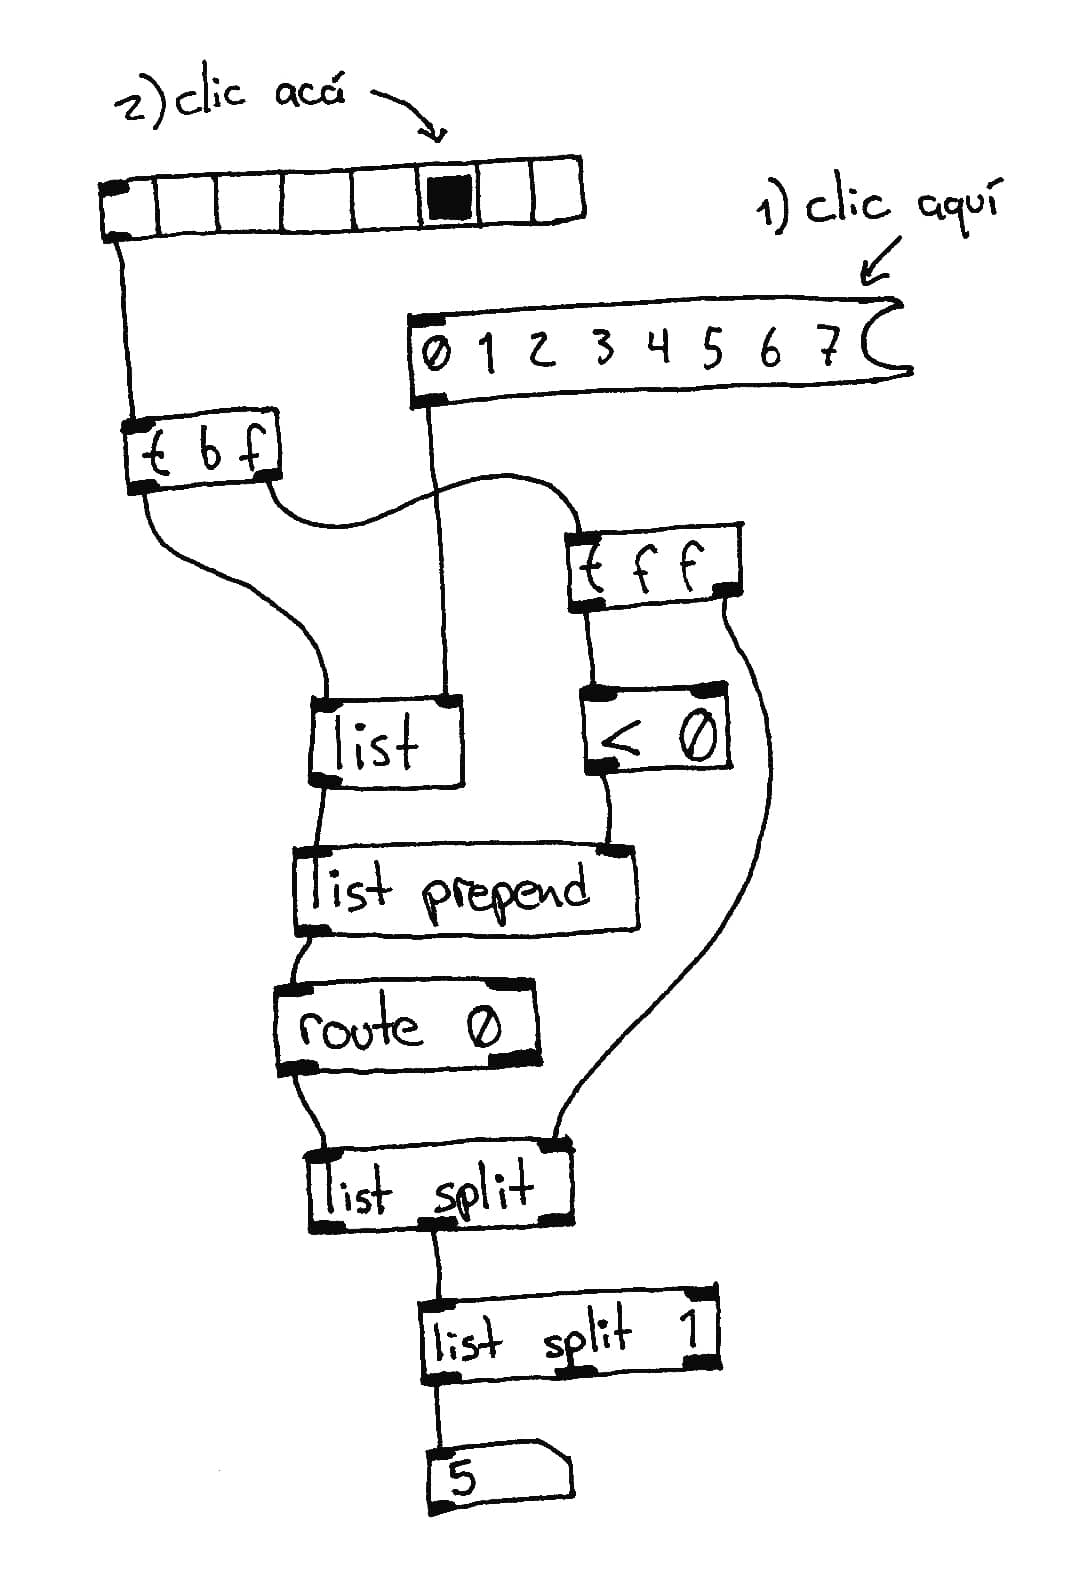 2) clic acá
1) clic aquí
0 1 2 3 4 5 6 7
t b f
t f f
list
< 0
list prepend
route 0
list split
list split 1
5